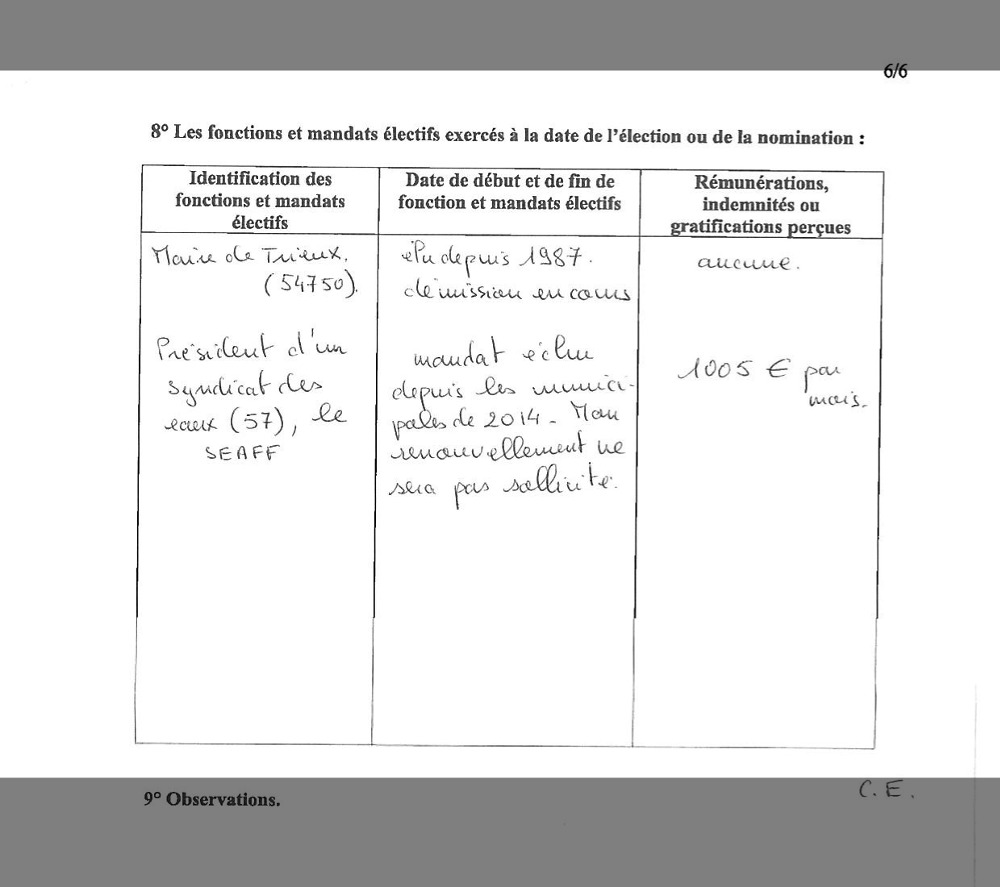 6/6
8° Les fonctions et mandats électifs exercés à la date de l'élection ou de la nomination :
Identification des
fonctions et mandats
électifs
Date de début et de fin de
fonction et mandats électifs
Rémunérations,
indemnités ou
gratifications perçues
Maire de Trieux.
(54750).
élu depuis 1987.
démission en cours
aucune.
Président d'un
syndicat des
eaux (57), le
SEAFF
mandat échu
depuis les munici-
pales de 2014 - Mon
renouvellement ne
sera pas sollicité.
1005 € par
mois.
9° Observations.
C.E.